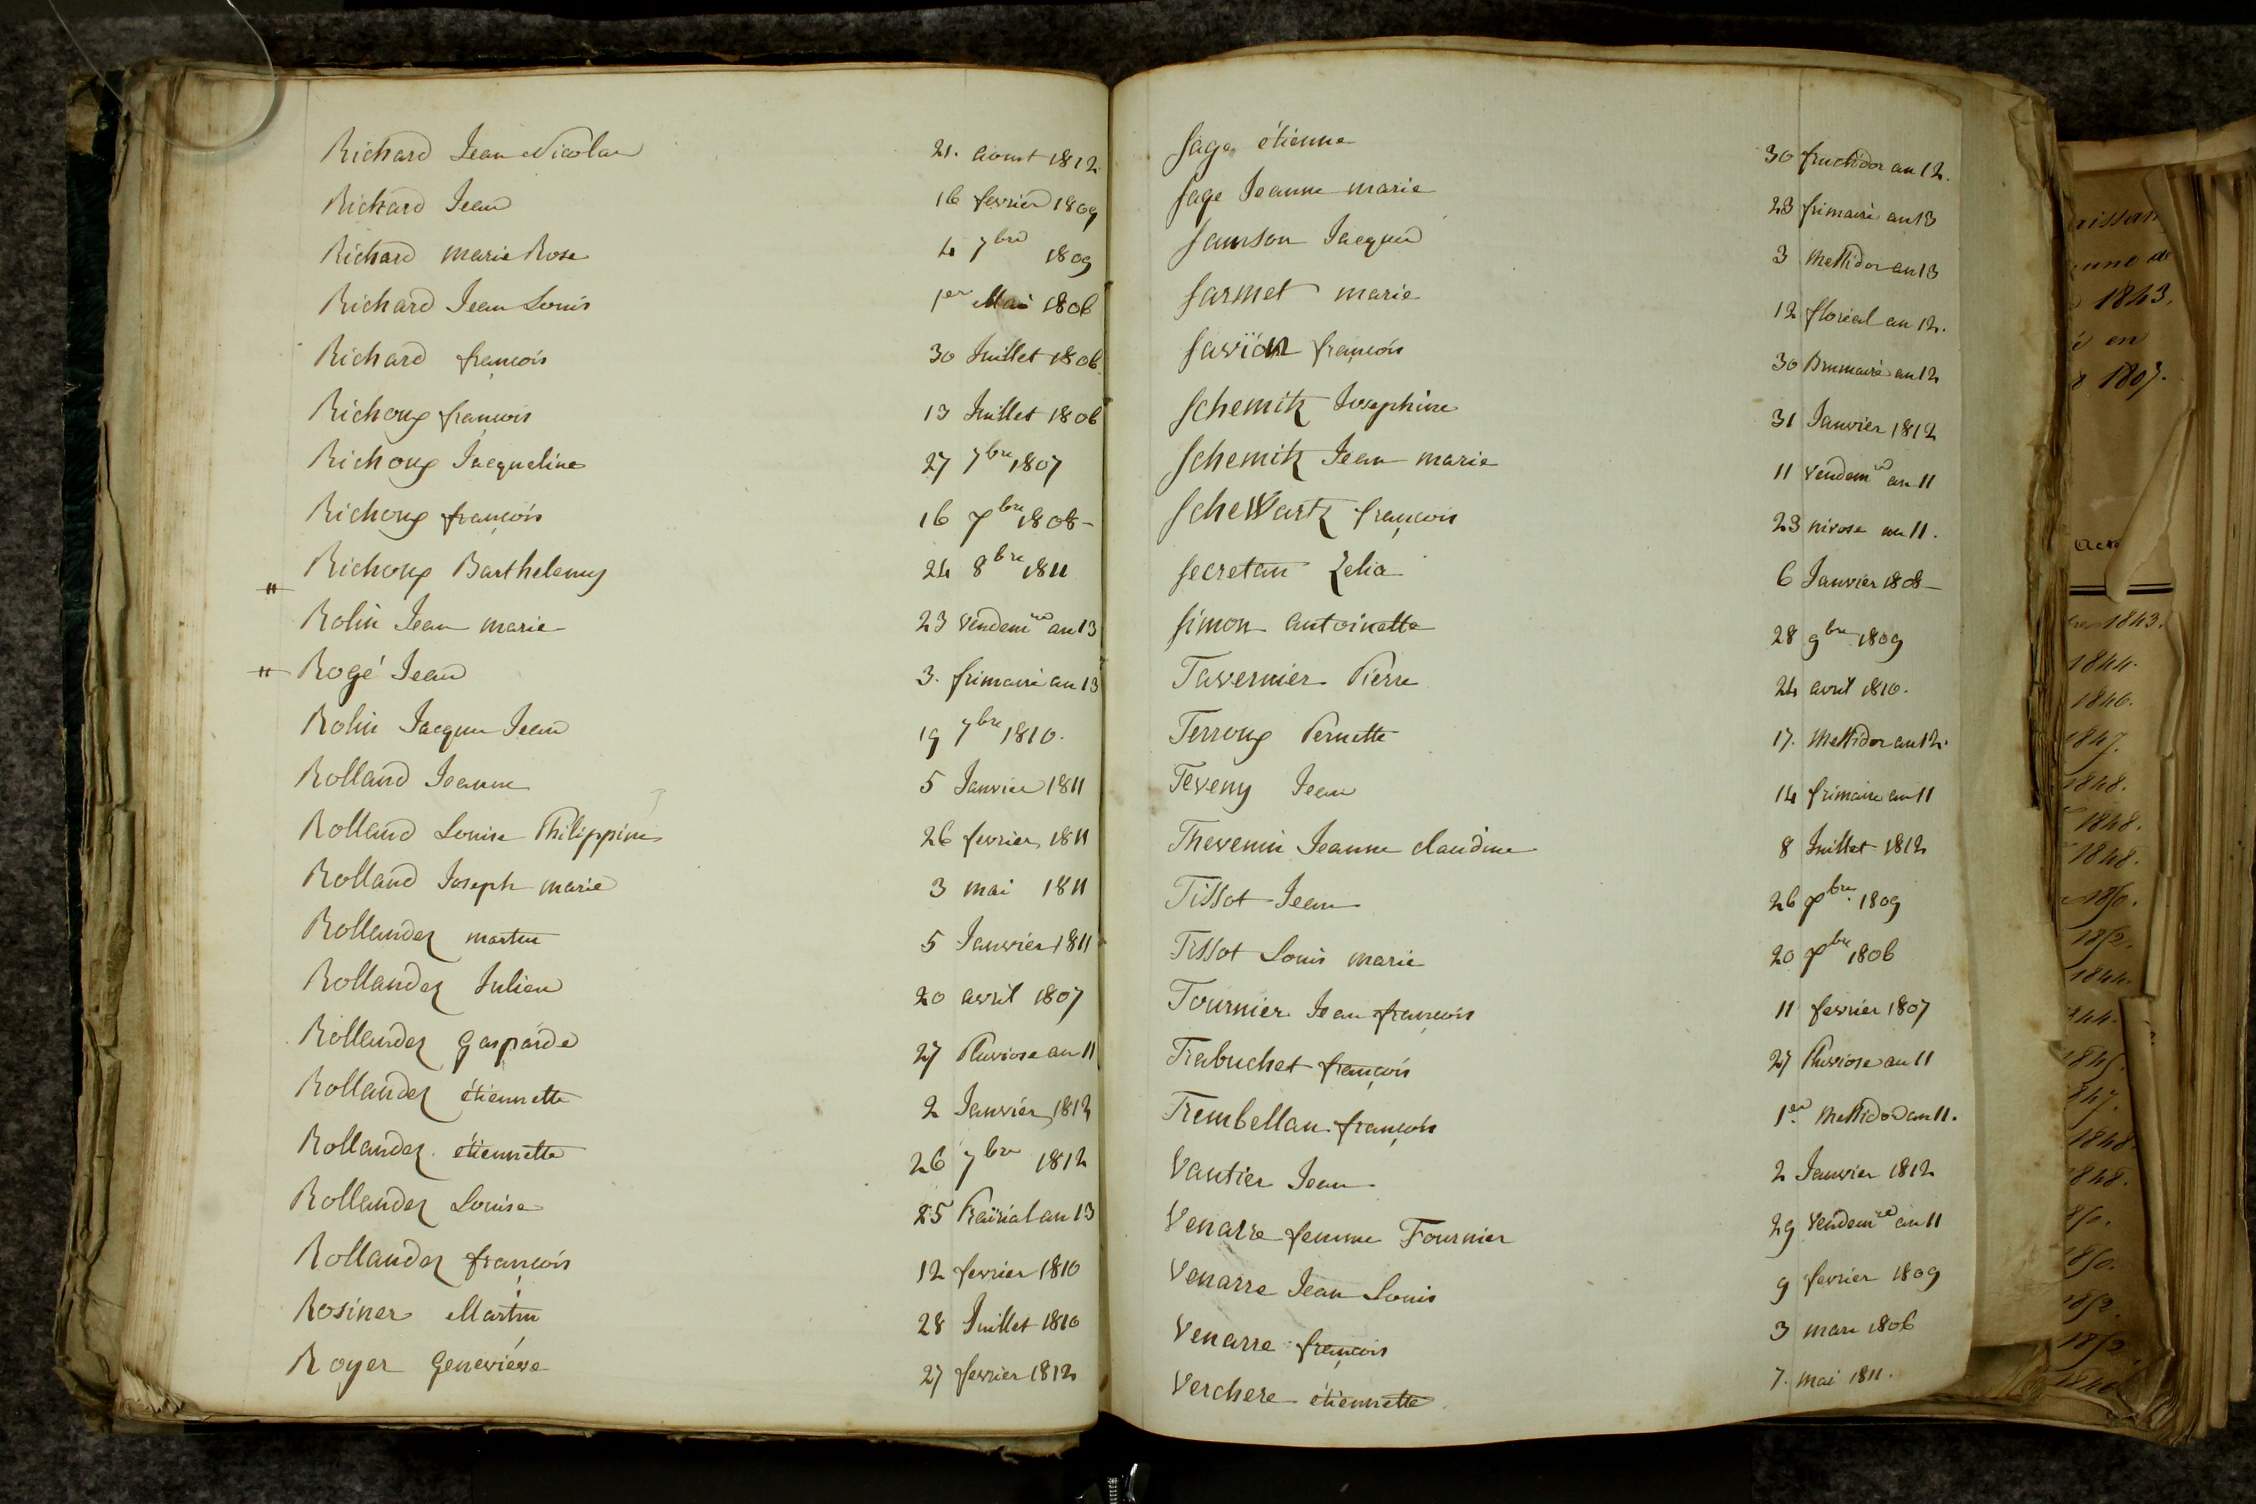 Richard Jean Nicolas 21. aoust 1812
Richard Jean 16 fevrier 1809
Richard marie Rose 4 7bre 1809
Richard Jean Louis 1er Mai 1806
Richard françois 30 Juillet 1806
Richoux françois 13 Juillet 1806
Richoux Jacqueline 27 7bre 1807
Richoux françois 16 Xbre 1808
Richoux Barthelemy 24 8bre 1811
" Rolin Jean marie 23 Vendemre an 13
" Rogé Jean 3. frimaire an 13
Rolin Jacques Jean 19 7bre 1810.
Rolland Jeanne 5 Janvier 1811
Rolland Louise Philippine 26 fevrier 1811
Rolland Joseph marie 3 mai 1811
Rollandez martin 5 Janvier 1811
Rollandez Julien 20 avril 1807
Rollandez gasparde 27 Pluviose an 11
Rollandez étiennette 2 Janvier 1812
Rollandez étiennette 26 7bre 1812
Rollandez Louise 25 Prairial an 13
Rollandez françois 12 fevrier 1810
Rosiner Martin 28 Juillet 1810
Royer Geneviéve 27 fevrier 1812
Sage étienne 30 fructidor an 12.
Sage Jeanne marie 23 frimaire an 13
Samson Jacques 3 Messidor an 13
Sarmet marie 12 floréal an 12.
Savion françois 30 Brumaire an 12
Schemitz Josephine 31 Janvier 1812
Schemitz Jean marie 11 Vendemre an 11
Schewartz françois 23 nivose an 11.
Secretan Zelia 6 Janvier 1808
Simon antoinette 28 9bre 1809
Tavernier Pierre 24 avril 1810.
Terroux Pernette 17. Messidor an 12.
Teveny Jean 14 frimaire an 11
Thevenin Jeanne claudine 8 Juillet 1812
Tissot Jean 26 Xbre. 1809
Tissot Louis marie 20 Xbre 1806
Tournier Jean françois 11 fevrier 1807
Trabuchet françois 27 Pluviose an 11
Trembellan françois 1er. Messidor an 11.
Vautier Jean 2 Janvier 1812
Venarre femme Fournier 29 Vendemre an 11
Venarre Jean Louis 9 fevrier 1809
Venarre françois 3 mars 1806
Verchere étiennette 7. mai 1811.
1843.
en
1807.
1843.
1844.
1846.
1847.
1848.
1848.
1848.